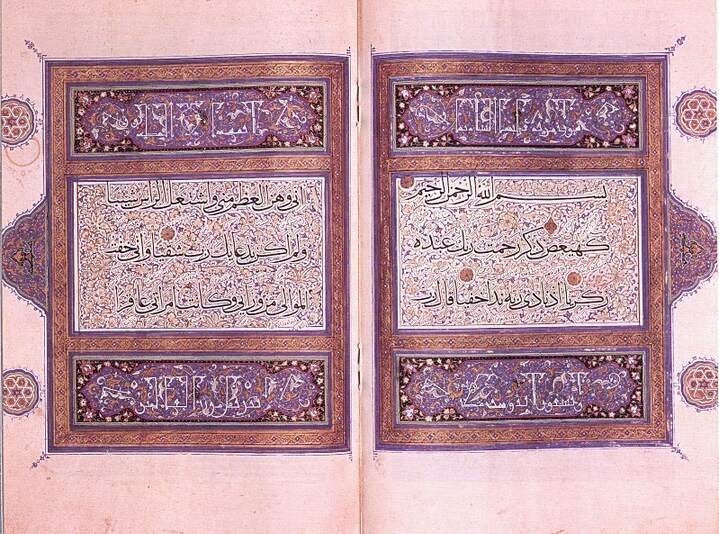 سورة مريم
بسم الله الرحمن الرحيم
كهيعص ذكر رحمت ربك عبده
زكريا اذ نادى ربه ندا خفيا قال رب
انى وهن العظم منى واشتعل الراس شيبا
ولم اكن بدعائك رب شقيا وانى خفت
الموالى من وراى وكانت امراتى عاقرا
تنزيل من رب العالمين